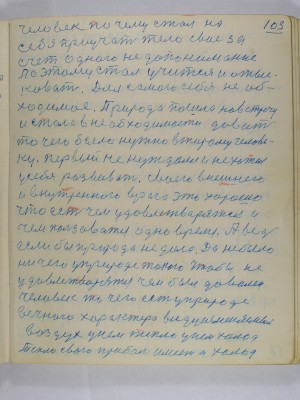 103
человек почему стал на
себя приучать тело свое за
счет одного недопонимание
поэтому стал учится и отыс-
кивать. Для самого себя не об-
ходимое. Природа пошла на встречу
и стала в не обходимости давать
то чего было нужно второму челове-
ку. Первый не нуждался и не хотел
у себя развивать. Своего внешнего
и внутренного врага это хорошо
что есть чем удовлетваряться и
чем пользоватся одно время. А вед
если бы природа не дала. Да не было
ни чего у природе такого чтобы не
удовлетваряться чем был доволен
человек то чего ест у природе
вечного характера видоизменения
воздух днем тепло днем холод
тепло свого прибал имеет а холод